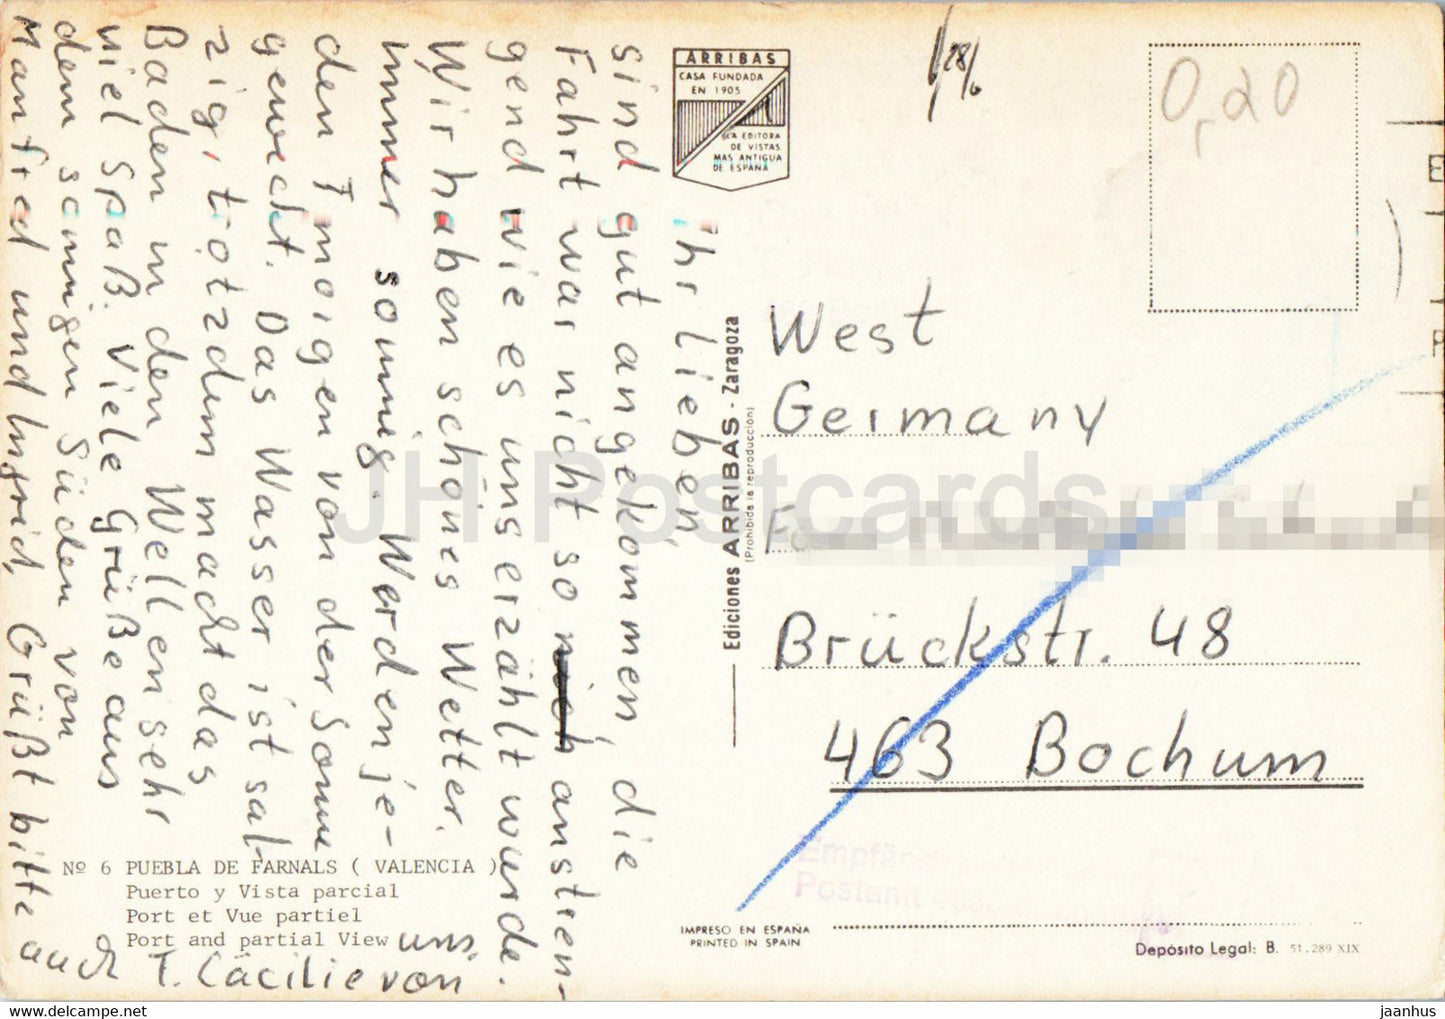 Ihr Lieben,
sind gut angekommen, die
Fahrt war nicht so anstren-
gend wie es uns erzählt wurde.
Wir haben schönes Wetter.
immer sonnig. Werden je-
den Morgen von der Sonne
geweckt. Das Wasser ist sal-
zig, trotzdem macht das
Baden in den Wellen sehr
viel Spaß. Viele Grüße aus
dem sonnigen Süden von
Manfred und Ingrid, Grüßt bitte
auch T. Cäcilie von
uns.
ARRIBAS
CASA FUNDADA
EN 1905
LA EDITORA
DE VISTAS
MAS ANTIGUA
DE ESPAÑA
28/6
0,20
West
Germany
Brückstr. 48
463 Bochum
Ediciones ARRIBAS - Zaragoza
(Prohibida la reproducción)
Nº 6 PUEBLA DE FARNALS ( VALENCIA )
Puerto y Vista parcial
Port et Vue partiel
Port and partial View
IMPRESO EN ESPAÑA
PRINTED IN SPAIN
Depósito Legal: B. 51.289 XIX
Postamt
JH Postcards
www.delcampe.net
jaanhus